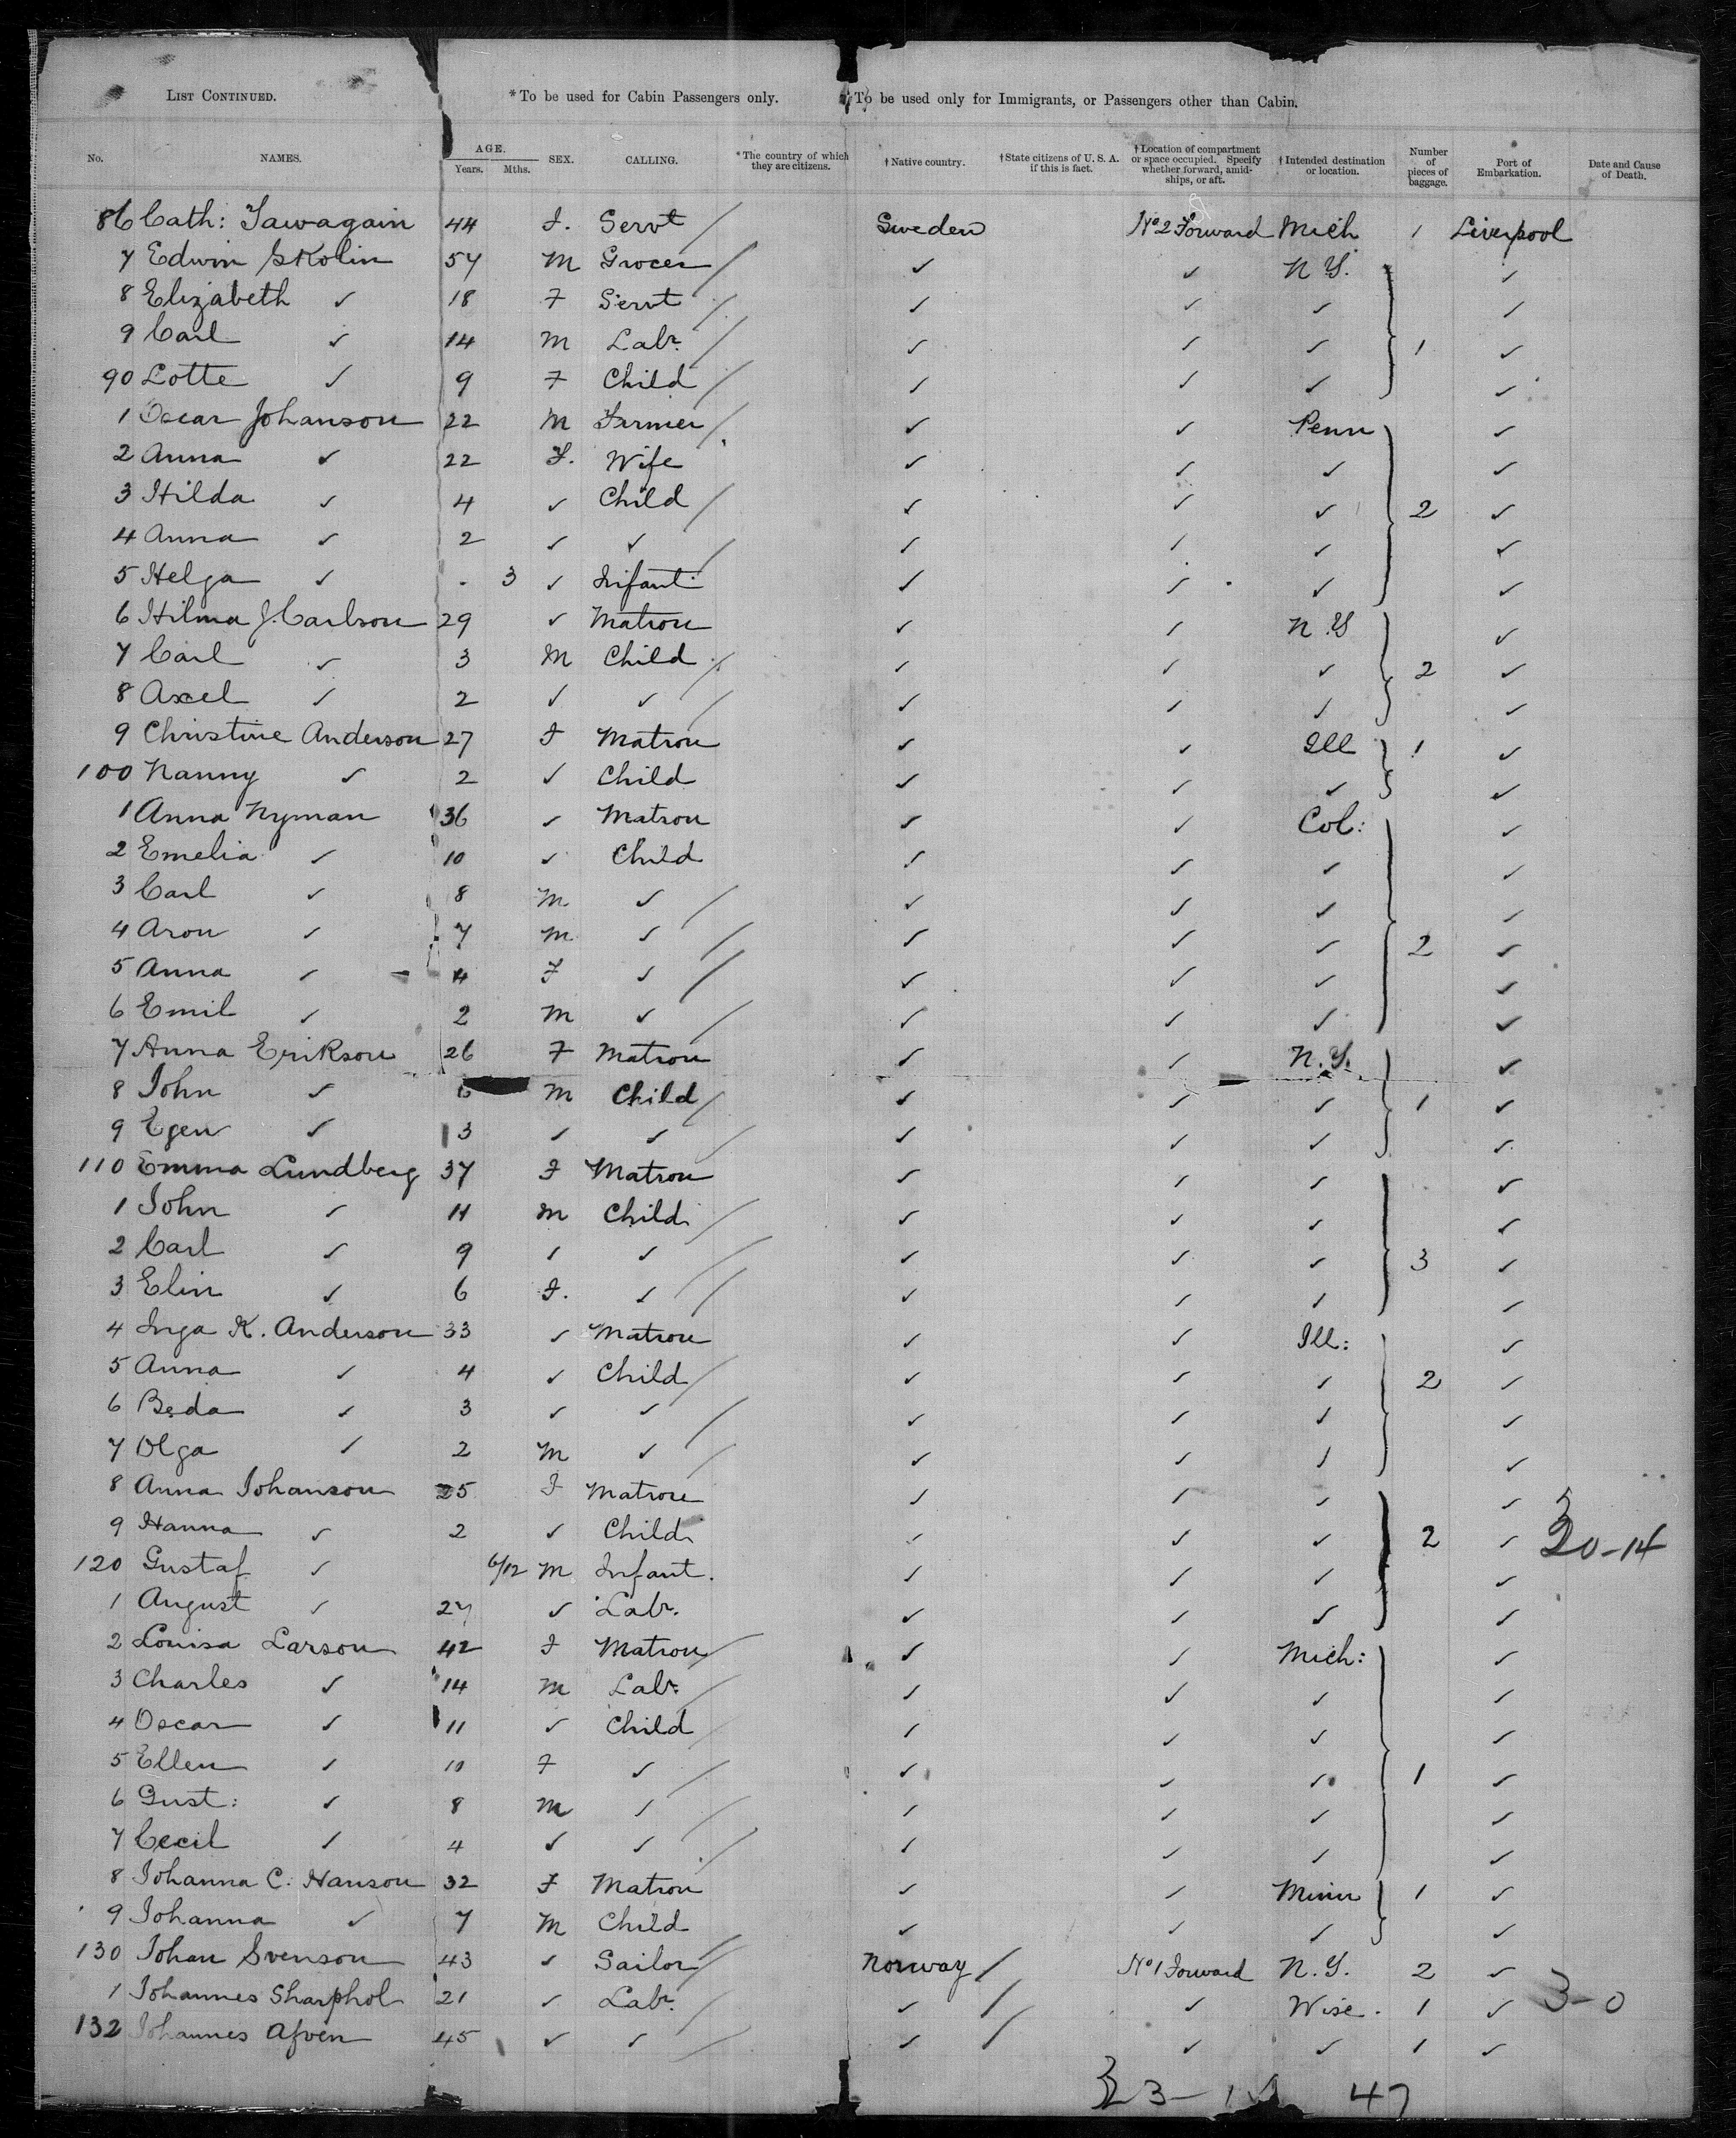 LIST CONTINUED. *To be used for Cabin Passengers only. †To be used only for Immigrants, or Passengers other than Cabin.
No. NAMES. AGE. Years. Mths. SEX. CALLING. *The country of which they are citizens. †Native country. †State citizens of U. S. A. if this is fact. †Location of compartment or space occupied. Specify whether forward, amidships, or aft. †Intended destination or location. Number of pieces of baggage. Port of Embarkation. Date and Cause of Death.
86 Cath: Tawagain 44 F. Servt / Sweden No 2 Forward Mich 1 Liverpool
7 Edwin Skolin 57 M Grocer / ✓ ✓ N Y. ✓
8 Elizabeth ✓ 18 F Servt / ✓ ✓ ✓ ✓
9 Carl ✓ 14 M Labr. / ✓ ✓ ✓ 1 ✓
90 Lotte ✓ 9 F Child / ✓ ✓ ✓ ✓
1 Oscar Johanson 22 M Farmer / ✓ ✓ Penn ✓
2 Anna ✓ 22 F. Wife ✓ ✓ ✓ ✓
3 Hilda ✓ 4 ✓ Child / ✓ ✓ ✓ 2 ✓
4 Anna ✓ 2 ✓ ✓ / ✓ ✓ ✓ ✓
5 Helga ✓ 3 ✓ Infant ✓ ✓ ✓ ✓
6 Hilma J. Carlson 29 ✓ Matron ✓ ✓ N Y ✓
7 Carl ✓ 3 M Child / ✓ ✓ ✓ 2 ✓
8 Axel ✓ 2 ✓ ✓ / ✓ ✓ ✓ ✓
9 Christine Anderson 27 F Matron ✓ ✓ Ill 1 ✓
100 Nanny ✓ 2 ✓ Child ✓ ✓ ✓ ✓
1 Anna Nyman 36 ✓ Matron ✓ ✓ Col: ✓
2 Emelia ✓ 10 ✓ Child ✓ ✓ ✓ ✓
3 Carl ✓ 8 M ✓ / ✓ ✓ ✓ ✓
4 Aron ✓ 7 M ✓ / ✓ ✓ ✓ 2 ✓
5 Anna ✓ 4 F ✓ / ✓ ✓ ✓ ✓
6 Emil ✓ 2 M ✓ / ✓ ✓ ✓ ✓
7 Anna Erikson 26 F Matron ✓ ✓ N.Y. ✓
8 John ✓ 6 M Child / ✓ ✓ ✓ 1 ✓
9 Egen ✓ 3 ✓ ✓ / ✓ ✓ ✓ ✓
110 Emma Lundberg 37 F Matron ✓ ✓ ✓ ✓
1 John ✓ 11 M Child / ✓ ✓ ✓ ✓
2 Carl ✓ 9 ✓ ✓ / ✓ ✓ ✓ 3 ✓
3 Elin ✓ 6 F. ✓ / ✓ ✓ ✓ ✓
4 Inga K. Anderson 33 ✓ Matron ✓ ✓ Ill: ✓
5 Anna ✓ 4 ✓ Child / ✓ ✓ ✓ 2 ✓
6 Beda ✓ 3 ✓ ✓ / ✓ ✓ ✓ ✓
7 Olga ✓ 2 M ✓ / ✓ ✓ ✓ ✓
8 Anna Johanson 25 F Matron ✓ ✓ ✓ ✓
9 Hanna ✓ 2 ✓ Child ✓ ✓ ✓ 2 ✓ 20-14
120 Gustaf ✓ 6/12 M Infant. ✓ ✓ ✓ ✓
1 August ✓ 27 ✓ Labr. ✓ ✓ ✓ ✓
2 Louisa Larson 42 F Matron / ✓ ✓ Mich: ✓
3 Charles ✓ 14 M Labr. / ✓ ✓ ✓ ✓
4 Oscar ✓ 11 ✓ Child / ✓ ✓ ✓ ✓
5 Ellen ✓ 10 F ✓ / ✓ ✓ ✓ 1 ✓
6 Gust: ✓ 8 M ✓ / ✓ ✓ ✓ ✓
7 Cecil ✓ 4 ✓ ✓ / ✓ ✓ ✓ ✓
8 Johanna C. Hanson 32 F Matron ✓ ✓ Minn 1 ✓
9 Johanna ✓ 7 M Child ✓ ✓ ✓ ✓
130 Johan Svenson 43 ✓ Sailor / Norway / No 1 Forward N.Y. 2 ✓
1 Johannes Sharphol 21 ✓ Labr. / ✓ / ✓ Wisc. 1 ✓ 3-0
132 Johannes Afven 45 ✓ ✓ / ✓ / ✓ ✓ 1 ✓
47